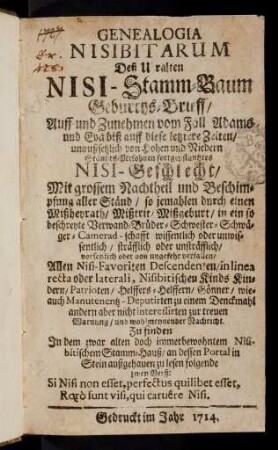 GENEALOGIA
NISIBITARUM
Deß Uralten
NISI-Stamm-Baum
Geburths-Bruff/
Auff und Zunehmen vom Fall Adams
und Eva biß auff diese letztere Zeiten/
unaußsetzlich von Hohen und Niedern
Stands-Persohnen fortgepflantztes
NISI-Geschlecht/
Mit grossem Nachtheil und Beschim-
pfung aller Ständ/ so jemahlen durch einen
Mißheyrath/ Mißtrit/ Mißgeburt/ in ein so
beschreyte Verwand-Brüder-Schwester-Schwä-
ger-Camerad-schafft wissentlich oder unwis-
sentlich/ sträfflich oder unsträfflich/
vorsetzlich oder von ungefehr verfallen/
Allen Nisi-Favoriten Descendenten/ in linea
recta oder laterali, Nisibitischen Kinds Kin-
dern/ Patrioten/ Helffers-Helffern/ Gönner/ wie-
auch Manutenentz-Deputirten zu einem Denckmahl
andern aber nicht interessirten zur treuen
Warnung/ und wohlmeynender Nachricht.
Zu finden
In dem zwar alten doch immerbewohntem Nisi-
bitischem Stamm-Hauß/ an dessen Portal in
Stein außgehauen zu lesen folgende
zwen Verß:
Si Nisi non esset, perfectus quilibet esset,
Rarò sunt visi, qui caruêre Nisi.
Gedruckt im Jahr 1714.